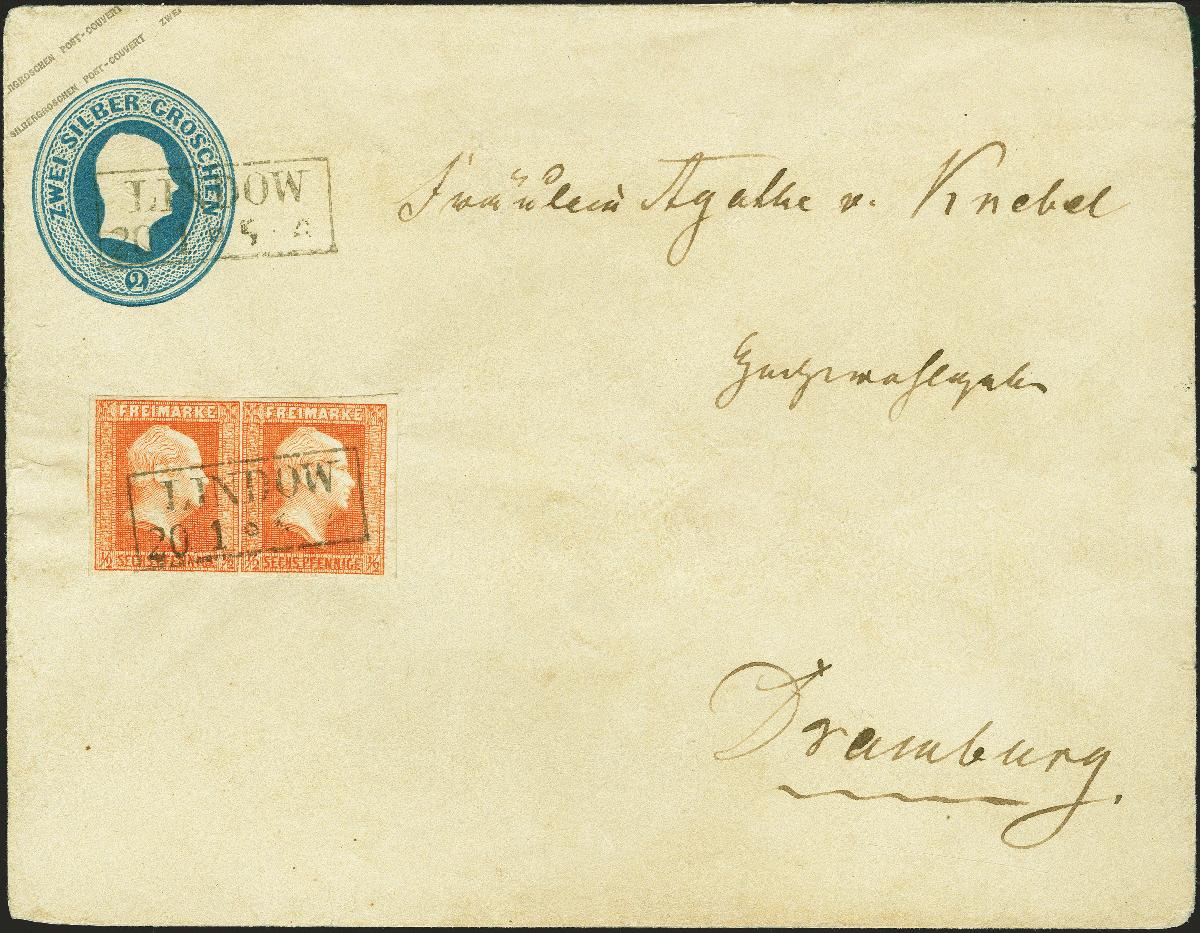 ERGROSCHEN POST-COUVERT ZWEI
SILBERGROSCHEN POST-COUVERT
ZWEI SILBER GROSCHEN
2
LINDOW
20 1
Fräulein Agathe v. Knebel
Hochwohlgeb
FREIMARKE FREIMARKE
LINDOW
20 1
½ SECHS PFENNIGE ½ ½ SECHS PFENNIGE ½
Dramburg.